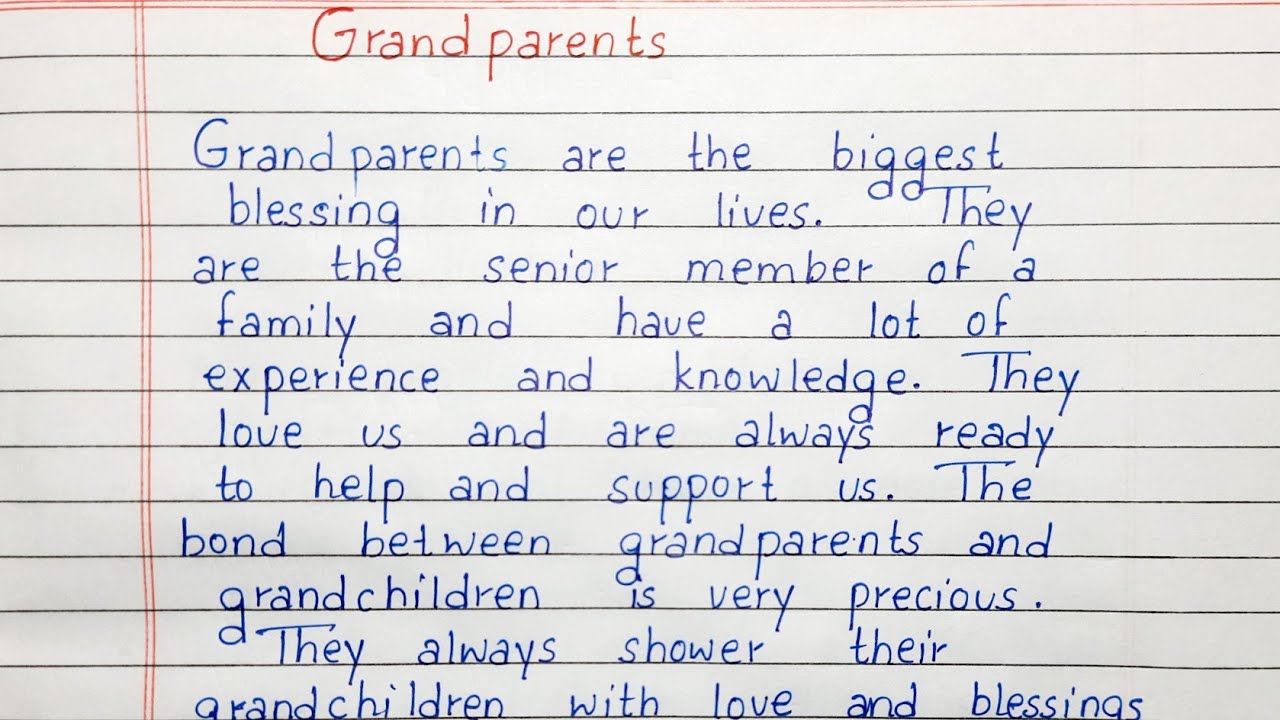 Grandparents
Grandparents are the biggest
blessing in our lives. They
are the senior member of a
family and have a lot of
experience and knowledge. They
love us and are always ready
to help and support us. The
bond between grandparents and
grandchildren is very precious.
They always shower their
grandchildren with love and blessings